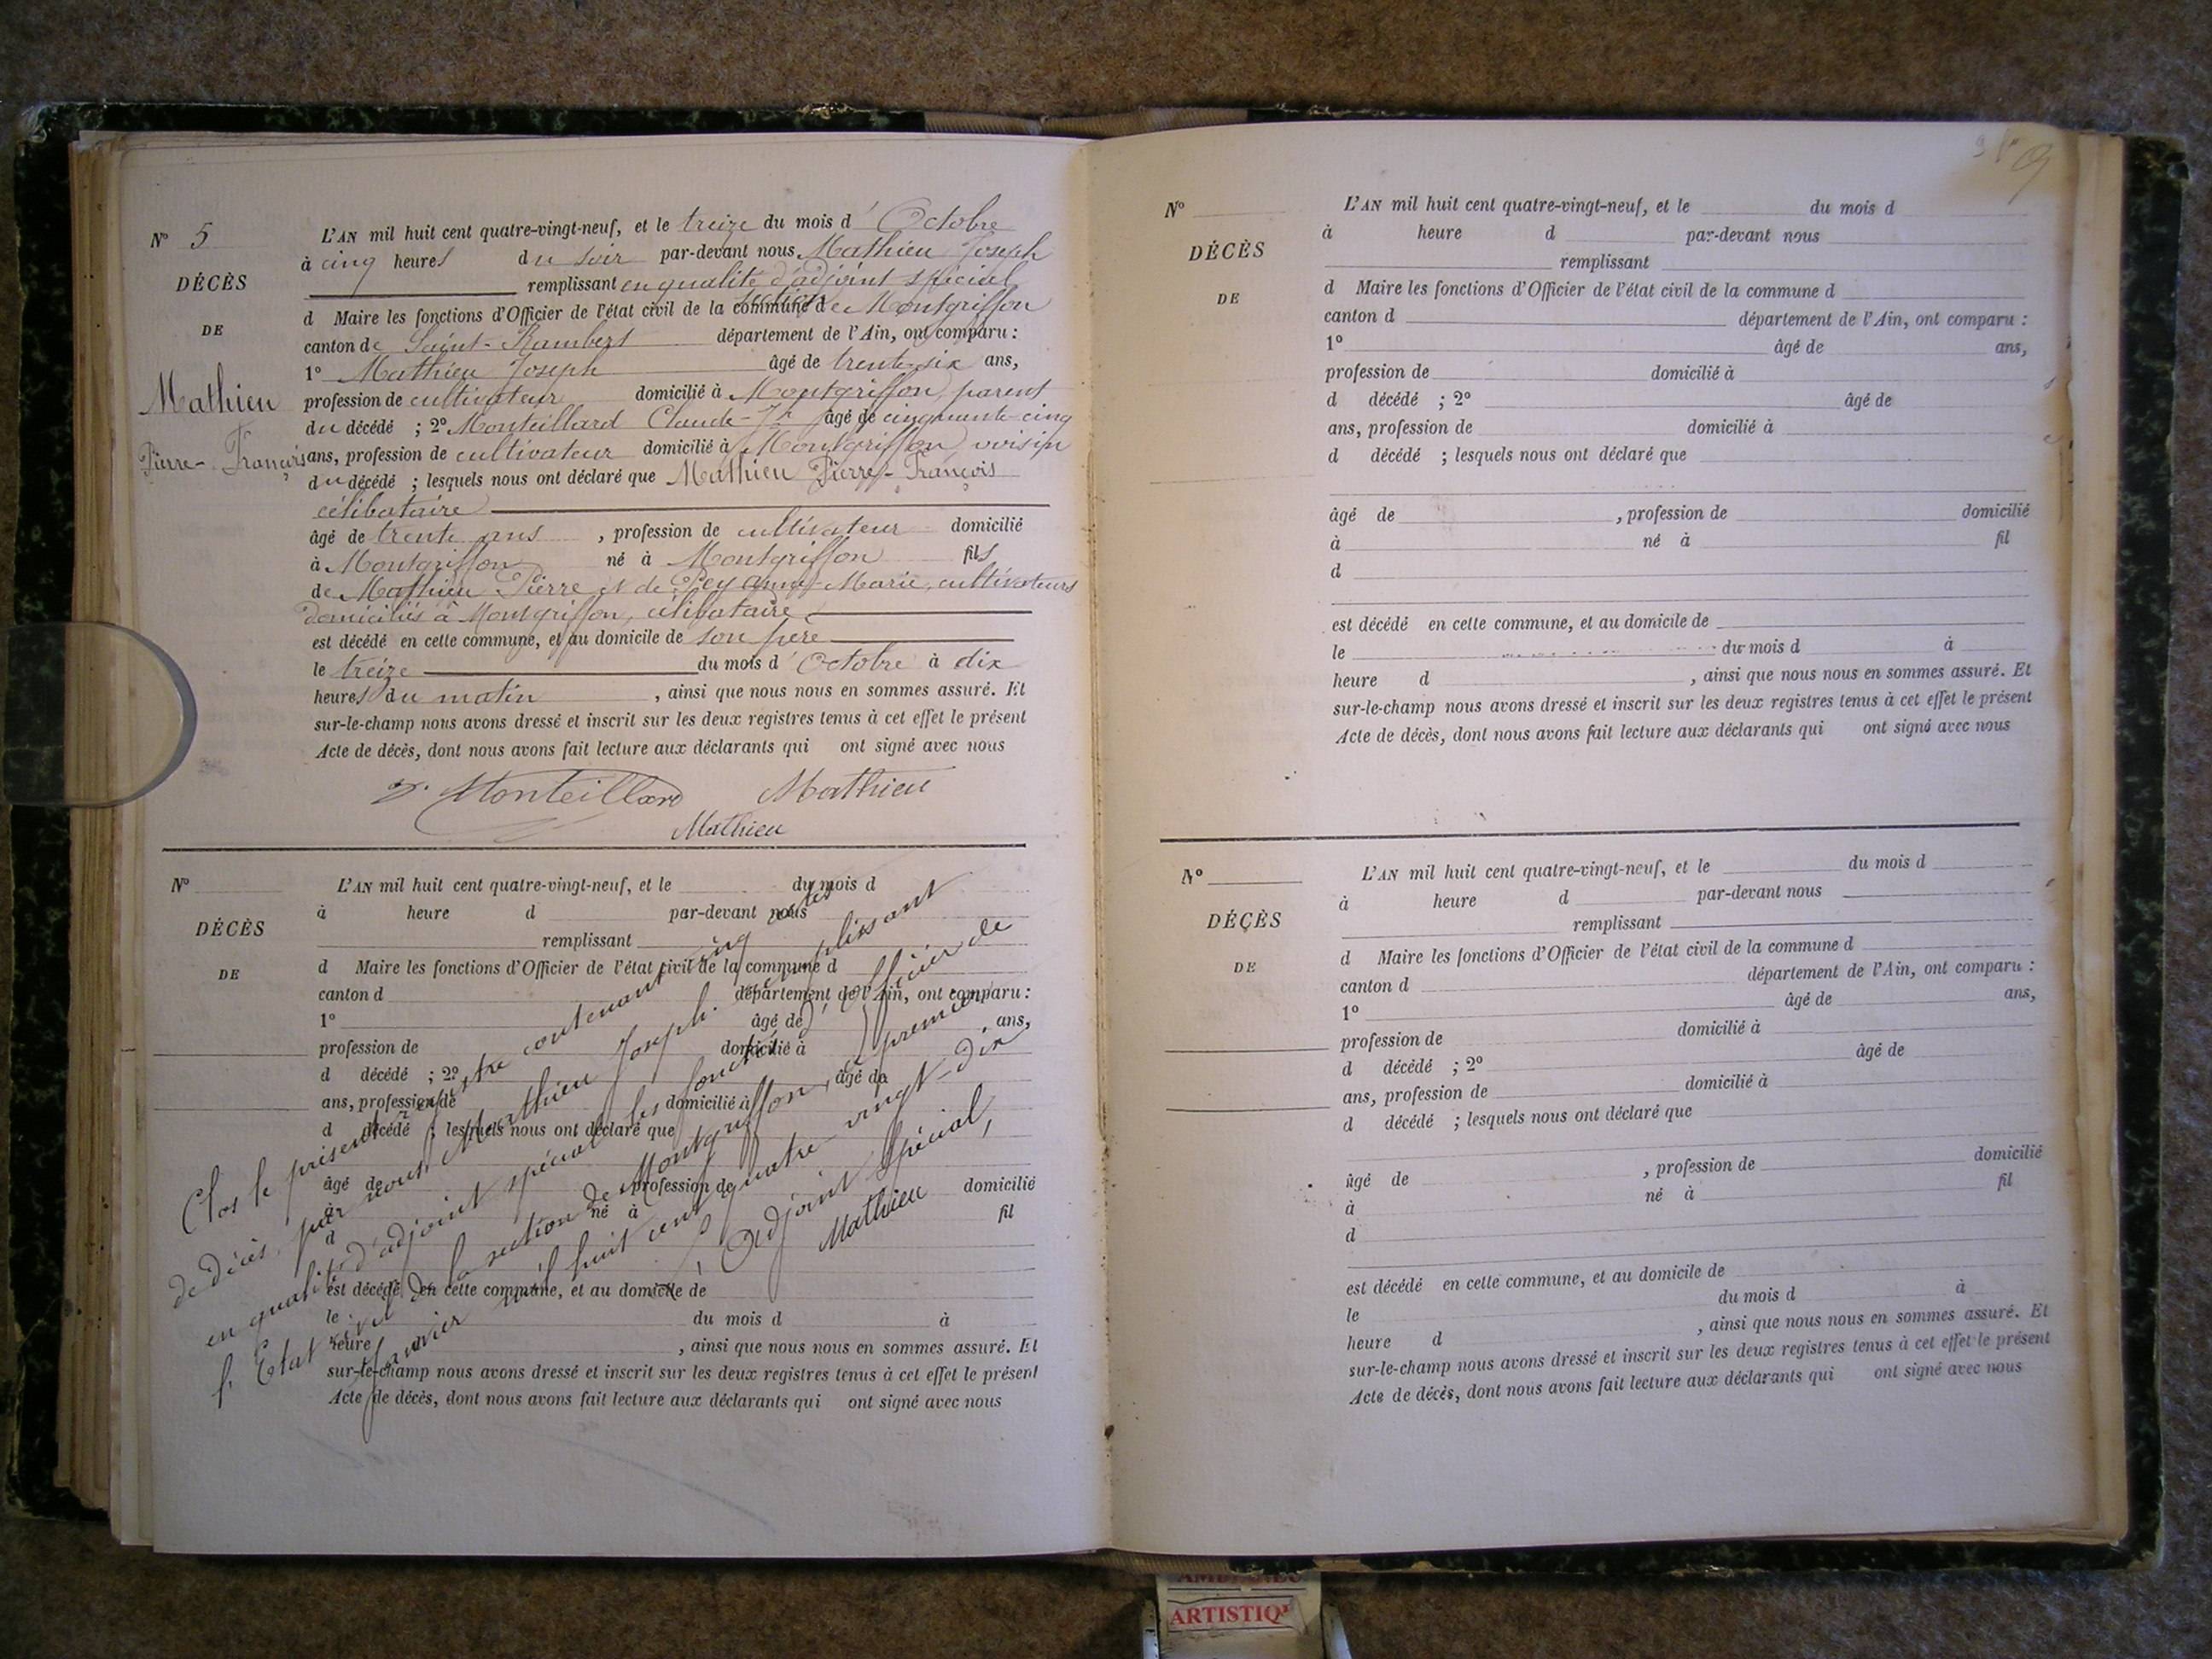 N° 5
DÉCÈS
DE
Mathieu
Pierre-François
L'AN mil huit cent quatre-vingt-neuf, et le treize du mois d'Octobre
à cinq heures du soir par-devant nous Mathieu Joseph
remplissant en qualité d'adjoint spécial
d Maire les fonctions d'Officier de l'état civil de la commune section de Montgriffon
canton de Saint-Rambert département de l'Ain, ont comparu :
1° Mathieu Joseph âgé de trente-six ans,
profession de cultivateur domicilié à Montgriffon, parent
du décédé ; 2° Monteillard Claude-Jh âgé de cinquante-cinq
ans, profession de cultivateur domicilié à Montgriffon voisin
du décédé ; lesquels nous ont déclaré que Mathieu Pierre-François
célibataire
âgé de trente ans , profession de cultivateur domicilié
à Montgriffon né à Montgriffon fils
de Mathieu Pierre et de Pey Anne-Marie, cultivateurs
domiciliés à Montgriffon, célibataire
est décédé en cette commune, et au domicile de son père
le treize du mois d'Octobre à dix
heures du matin , ainsi que nous nous en sommes assuré. Et
sur-le-champ nous avons dressé et inscrit sur les deux registres tenus à cet effet le présent
Acte de décès, dont nous avons fait lecture aux déclarants qui ont signé avec nous
Monteillard Mathieu
Mathieu
N°
DÉCÈS
DE
L'AN mil huit cent quatre-vingt-neuf, et le du mois d
à heure d par-devant nous
remplissant
d Maire les fonctions d'Officier de l'état civil de la commune d
canton d département de l'Ain, ont comparu :
1° âgé de ans,
profession de domicilié à
d décédé ; 2° âgé de
ans, profession de domicilié à
d décédé ; lesquels nous ont déclaré que
âgé de , profession de domicilié
à né à fil
d
est décédé en cette commune, et au domicile de
le du mois d à
heure d , ainsi que nous nous en sommes assuré. Et
sur-le-champ nous avons dressé et inscrit sur les deux registres tenus à cet effet le présent
Acte de décès, dont nous avons fait lecture aux déclarants qui ont signé avec nous
Clos le présent registre contenant cinq actes
de décès, par nous Mathieu Joseph remplissant
en qualité d'adjoint spécial les fonctions d'Officier de
l'Etat civil de la section de Montgriffon, le premier
Janvier mil huit cent quatre vingt-dix
L'Adjoint spécial,
Mathieu
9
N°
DÉCÈS
DE
L'AN mil huit cent quatre-vingt-neuf, et le du mois d
à heure d par-devant nous
remplissant
d Maire les fonctions d'Officier de l'état civil de la commune d
canton d département de l'Ain, ont comparu :
1° âgé de ans,
profession de domicilié à
d décédé ; 2° âgé de
ans, profession de domicilié à
d décédé ; lesquels nous ont déclaré que
âgé de , profession de domicilié
à né à fil
d
est décédé en cette commune, et au domicile de
le du mois d à
heure d , ainsi que nous nous en sommes assuré. Et
sur-le-champ nous avons dressé et inscrit sur les deux registres tenus à cet effet le présent
Acte de décès, dont nous avons fait lecture aux déclarants qui ont signé avec nous
N°
DÉCÈS
DE
L'AN mil huit cent quatre-vingt-neuf, et le du mois d
à heure d par-devant nous
remplissant
d Maire les fonctions d'Officier de l'état civil de la commune d
canton d département de l'Ain, ont comparu :
1° âgé de ans,
profession de domicilié à
d décédé ; 2° âgé de
ans, profession de domicilié à
d décédé ; lesquels nous ont déclaré que
âgé de , profession de domicilié
à né à fil
d
est décédé en cette commune, et au domicile de
le du mois d à
heure d , ainsi que nous nous en sommes assuré. Et
sur-le-champ nous avons dressé et inscrit sur les deux registres tenus à cet effet le présent
Acte de décès, dont nous avons fait lecture aux déclarants qui ont signé avec nous